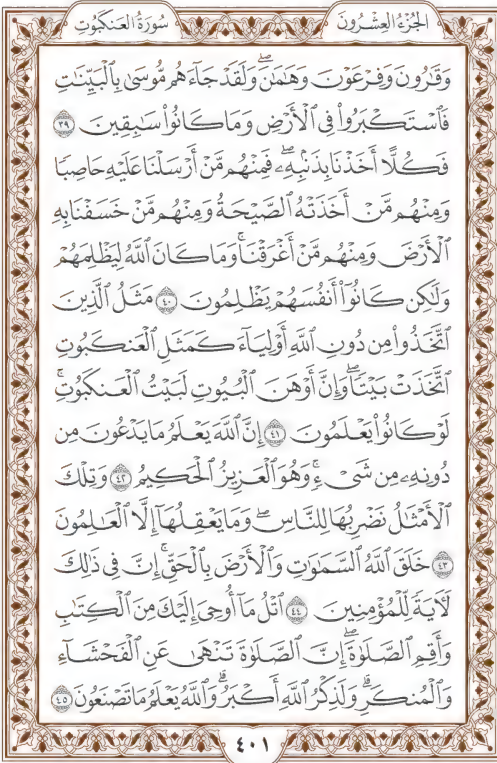 الجُزْءُ العِشْرُونَ سُورَةُ العَنكَبُوتِ
وَقَٰرُونَ وَفِرْعَوْنَ وَهَٰمَٰنَ ۖ وَلَقَدْ جَآءَهُم مُّوسَىٰ بِٱلْبَيِّنَٰتِ
فَٱسْتَكْبَرُوا۟ فِى ٱلْأَرْضِ وَمَا كَانُوا۟ سَٰبِقِينَ ٣٩
فَكُلًّا أَخَذْنَا بِذَنۢبِهِۦ ۖ فَمِنْهُم مَّنْ أَرْسَلْنَا عَلَيْهِ حَاصِبًا
وَمِنْهُم مَّنْ أَخَذَتْهُ ٱلصَّيْحَةُ وَمِنْهُم مَّنْ خَسَفْنَا بِهِ
ٱلْأَرْضَ وَمِنْهُم مَّنْ أَغْرَقْنَا ۚ وَمَا كَانَ ٱللَّهُ لِيَظْلِمَهُمْ
وَلَٰكِن كَانُوٓا۟ أَنفُسَهُمْ يَظْلِمُونَ ٤٠ مَثَلُ ٱلَّذِينَ
ٱتَّخَذُوا۟ مِن دُونِ ٱللَّهِ أَوْلِيَآءَ كَمَثَلِ ٱلْعَنكَبُوتِ
ٱتَّخَذَتْ بَيْتًا ۖ وَإِنَّ أَوْهَنَ ٱلْبُيُوتِ لَبَيْتُ ٱلْعَنكَبُوتِ ۚ
لَوْ كَانُوا۟ يَعْلَمُونَ ٤١ إِنَّ ٱللَّهَ يَعْلَمُ مَا يَدْعُونَ مِن
دُونِهِۦ مِن شَىْءٍ ۚ وَهُوَ ٱلْعَزِيزُ ٱلْحَكِيمُ ٤٢ وَتِلْكَ
ٱلْأَمْثَٰلُ نَضْرِبُهَا لِلنَّاسِ ۖ وَمَا يَعْقِلُهَآ إِلَّا ٱلْعَٰلِمُونَ
٤٣ خَلَقَ ٱللَّهُ ٱلسَّمَٰوَٰتِ وَٱلْأَرْضَ بِٱلْحَقِّ ۚ إِنَّ فِى ذَٰلِكَ
لَءَايَةً لِّلْمُؤْمِنِينَ ٤٤ ٱتْلُ مَآ أُوحِىَ إِلَيْكَ مِنَ ٱلْكِتَٰبِ
وَأَقِمِ ٱلصَّلَوٰةَ ۖ إِنَّ ٱلصَّلَوٰةَ تَنْهَىٰ عَنِ ٱلْفَحْشَآءِ
وَٱلْمُنكَرِ ۗ وَلَذِكْرُ ٱللَّهِ أَكْبَرُ ۗ وَٱللَّهُ يَعْلَمُ مَا تَصْنَعُونَ ٤٥
٤٠١